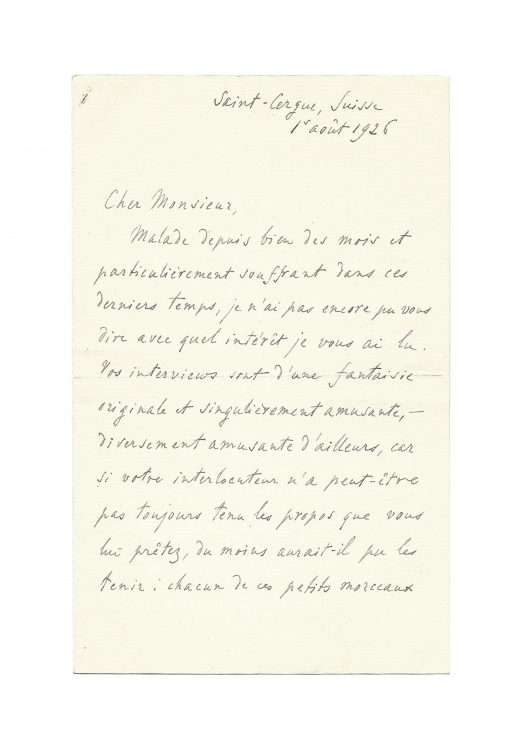 Saint-Cergue, Suisse
1er août 1926
Cher Monsieur,
Malade depuis bien des mois et
particulièrement souffrant dans ces
derniers temps, je n'ai pas encore pu vous
dire avec quel intérêt je vous ai lu.
Vos interviews sont d'une fantaisie
originale et singulièrement amusante, –
diversement amusante d'ailleurs, car
si votre interlocuteur n'a peut-être
pas toujours tenu les propos que vous
lui prêtez, du moins aurait-il pu les
tenir : chacun de ces petits morceaux